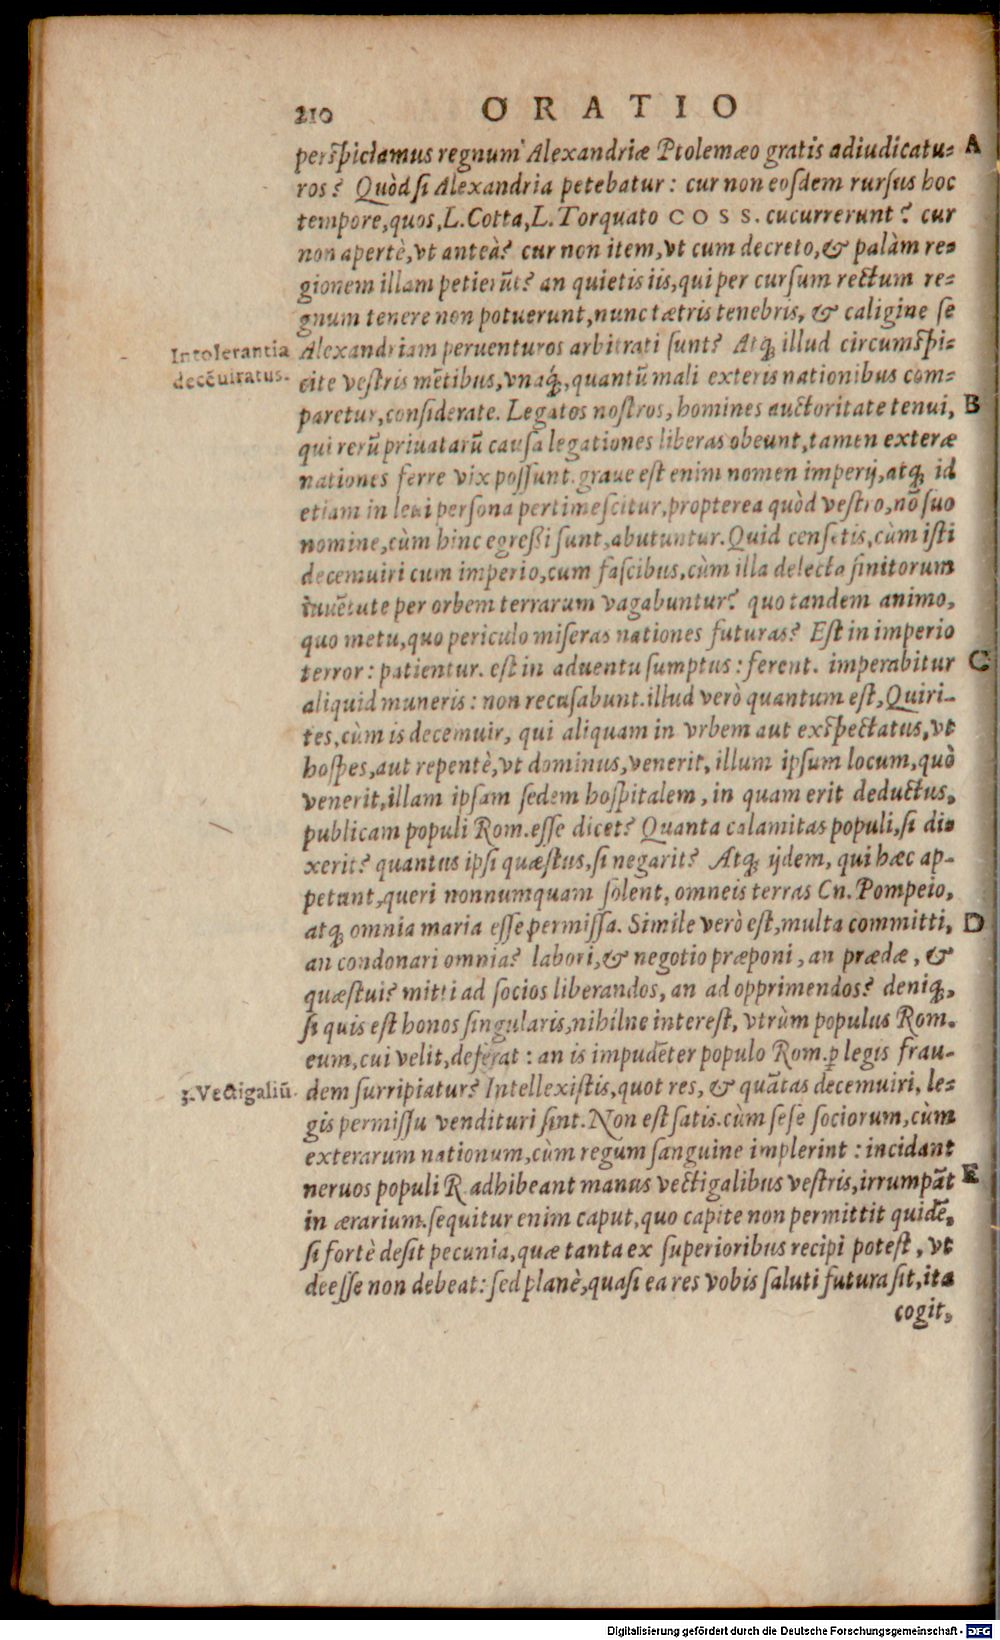 210 ORATIO
perspiciamus regnum Alexandriæ Ptolemæo gratis adiudicatu= A
ros? Quòd si Alexandria petebatur: cur non eosdem rursus hoc
tempore, quos, L. Cotta, L. Torquato COSS. cucurrerunt? cur
non apertè, vt anteà? cur non item, vt cum decreto, & palàm re=
gionem illam petierũt? an quietis iis, qui per cursum rectum re=
gnum tenere non potuerunt, nunc tætris tenebris, & caligine se
Intolerantia
decẽuiratus.
Alexandriam peruenturos arbitrati sunt? Atq; illud circumspi=
cite vestris mẽtibus, vnaq́;, quantũ mali exteris nationibus com=
paretur, considerate. Legatos nostros, homines auctoritate tenui, B
qui rerũ priuatarũ causa legationes liberas obeunt, tamen exteræ
nationes ferre vix possunt. graue est enim nomen imperij, atq; id
etiam in leui persona pertimescitur, propterea quòd vestro, nõ suo
nomine, cùm hinc egreßi sunt, abutuntur. Quid censetis, cùm isti
decemuiri cum imperio, cum fascibus, cùm illa delecta finitorum
iuuẽtute per orbem terrarum vagabuntur? quo tandem animo,
quo metu, quo periculo miseras nationes futuras? Est in imperio
terror: patientur. est in aduentu sumptus: ferent. imperabitur C
aliquid muneris: non recusabunt. illud verò quantum est, Quiri-
tes, cùm is decemuir, qui aliquam in vrbem aut exspectatus, vt
hospes, aut repentè, vt dominus, venerit, illum ipsum locum, quò
venerit, illam ipsam sedem hospitalem, in quam erit deductus,
publicam populi Rom. esse dicet? Quanta calamitas populi, si di=
xerit? quantus ipsi quæstus, si negarit? Atq; ijdem, qui hæc ap-
petunt, queri nonnumquam solent, omneis terras Cn. Pompeio,
atq; omnia maria esse permissa. Simile verò est, multa committi, D
an condonari omnia? labori, & negotio præponi, an prædæ, &
quæstui? mitti ad socios liberandos, an ad opprimendos? deniq;,
si quis est honos singularis, nihilne interest, vtrùm populus Rom.
eum, cui velit, deferat: an is impudẽter populo Rom. ꝑ legis frau-
3. Vectigaliũ.
dem surripiatur? Intellexistis, quot res, & quãtas decemuiri, le=
gis permissu vendituri sint. Non est satis. cùm sese sociorum, cùm
exterarum nationum, cùm regum sanguine implerint: incidant
neruos populi R. adhibeant manus vectigalibus vestris, irrumpãt E
in ærarium. sequitur enim caput, quo capite non permittit quidẽ,
si fortè desit pecunia, quæ tanta ex superioribus recipi potest, vt
deesse non debeat: sed planè, quasi ea res vobis saluti futura sit, ita
cogit,
Digitalisierung gefördert durch die Deutsche Forschungsgemeinschaft - DFG